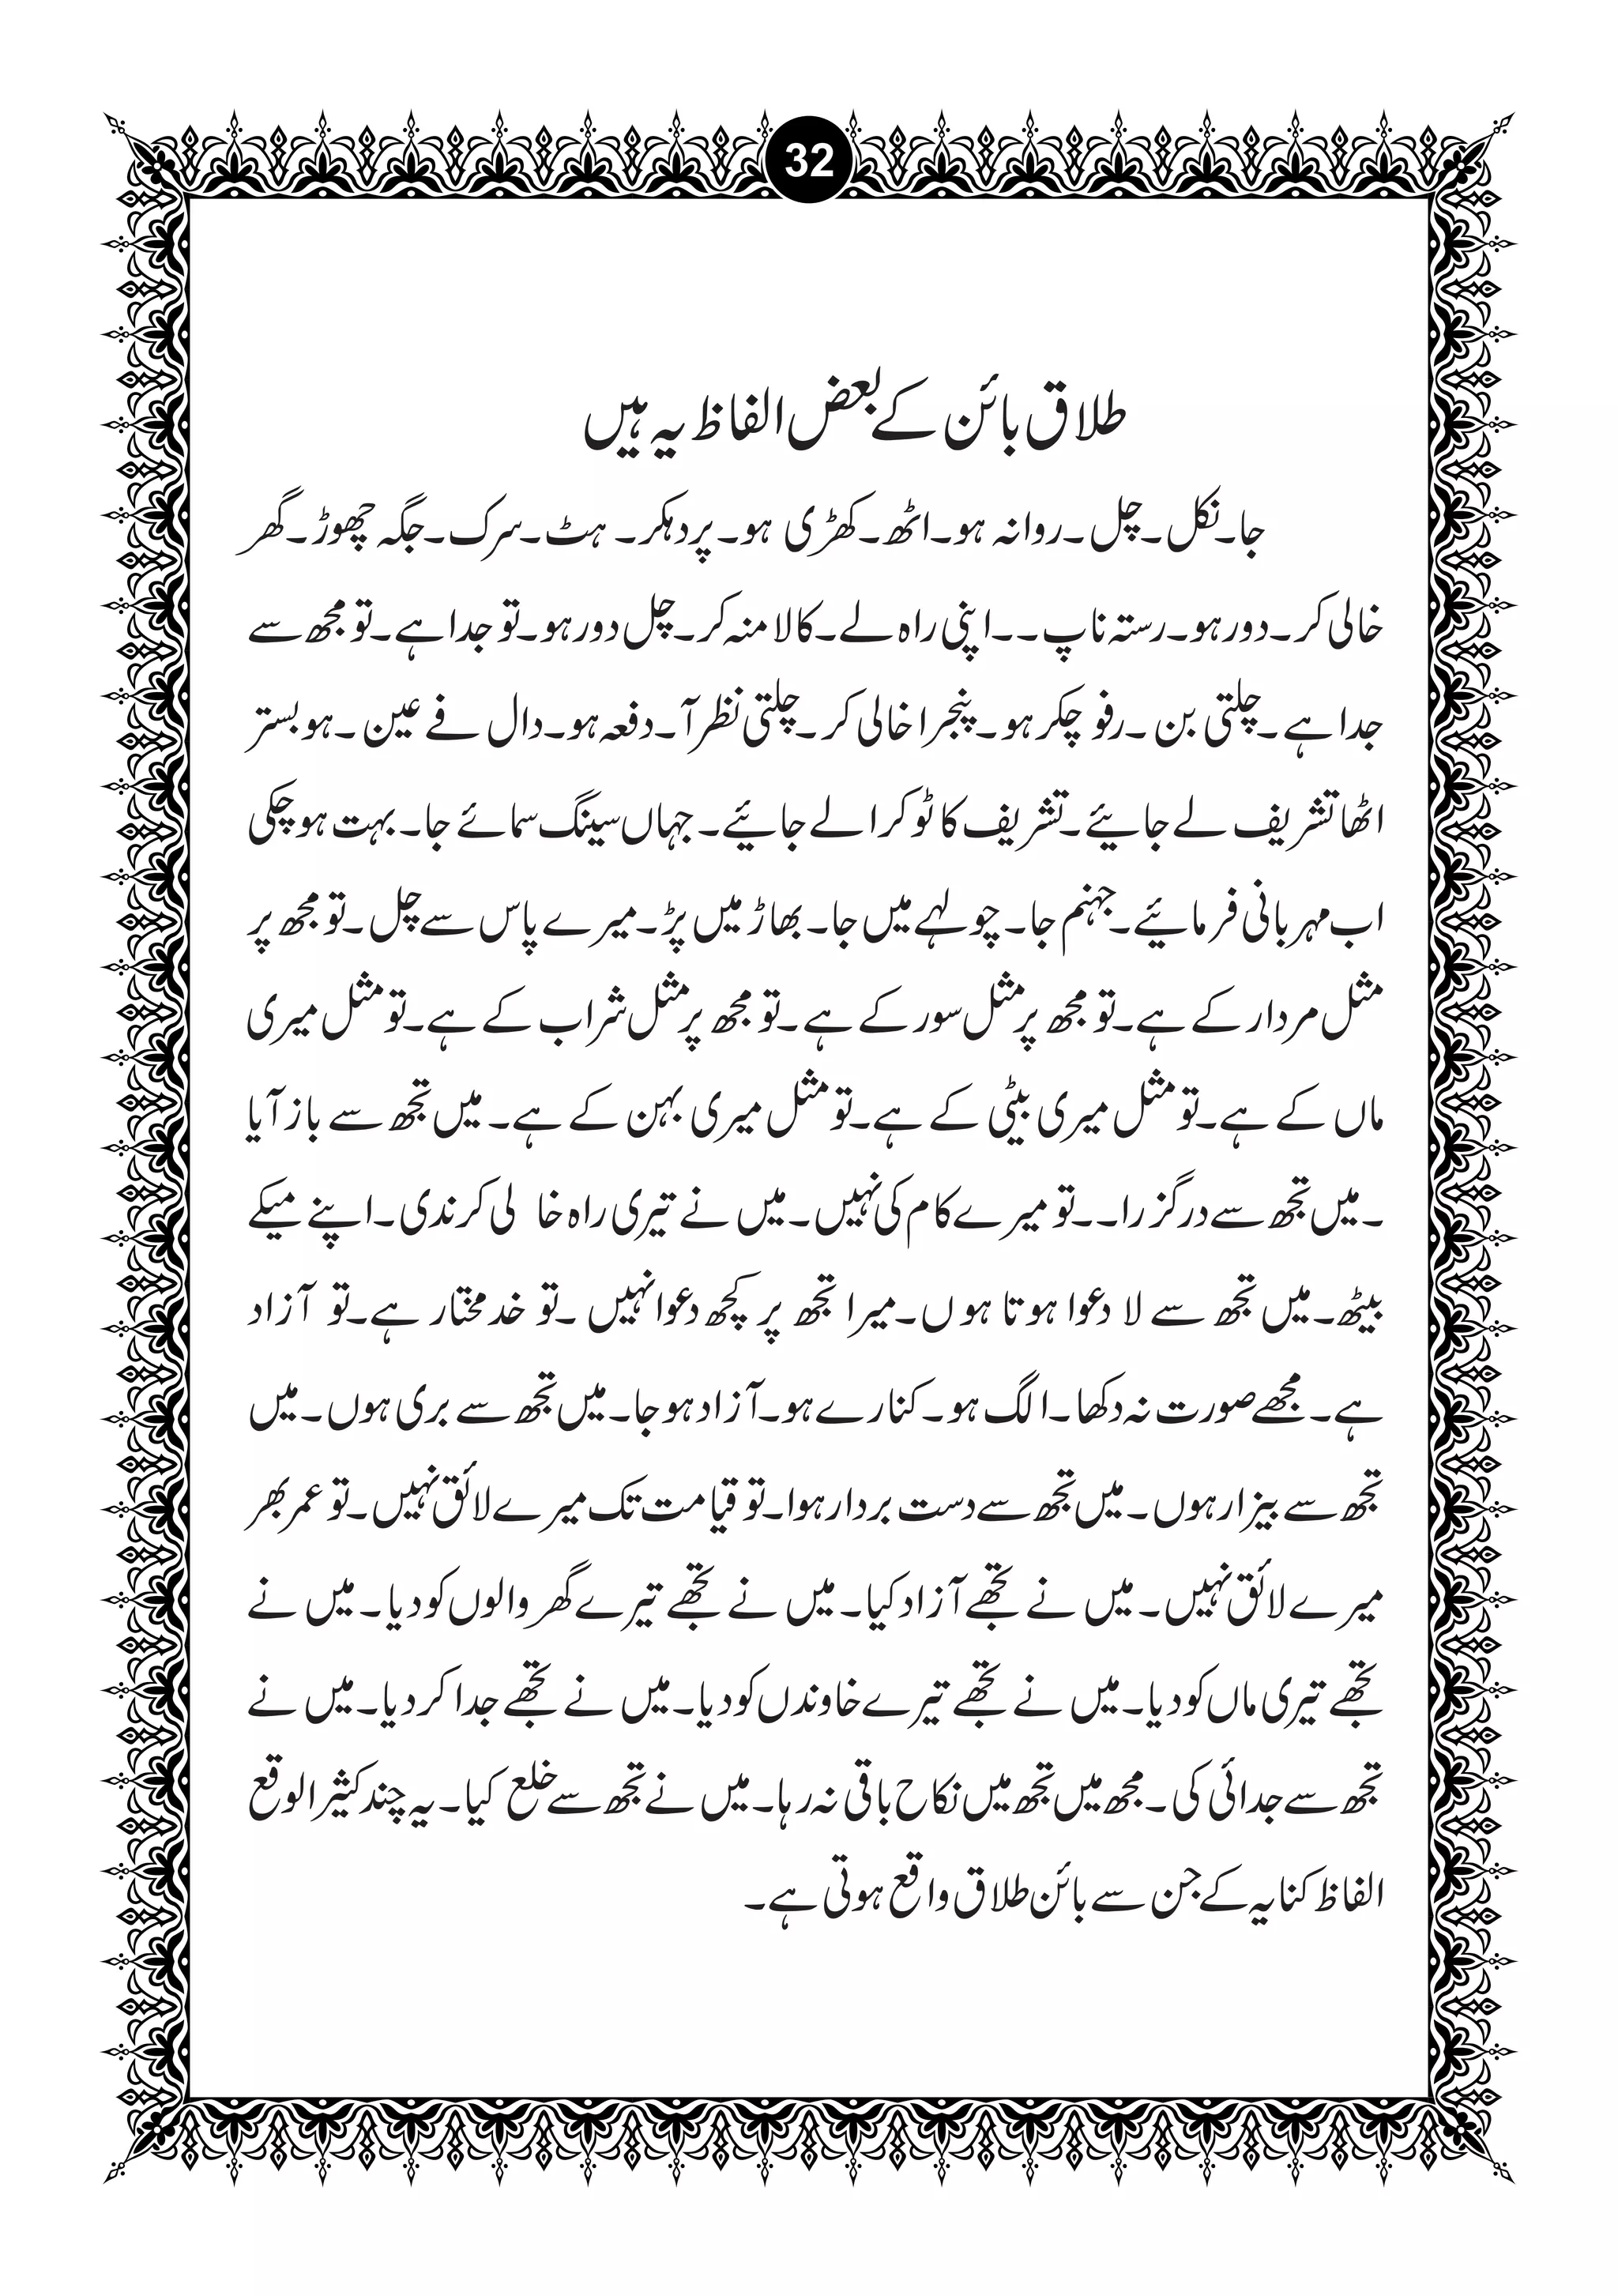 32
طلاق بائن کے بعض الفاظ یہ ہیں
جا۔نکل۔چل۔روانہ ہو۔اٹھ۔کھڑی ہو۔پردہکر۔ ہٹ۔سرک۔جگہ چھوڑ۔گھر
خالی کر۔دور ہو۔رستہ ناپ۔۔اپنی راہ لے۔کالا منہ کر۔چل دور ہو۔تو جدا ہے۔تو مجھ سے
جدا ہے۔چلتی بن۔رفو چکر ہو۔پنجرا خالی کر۔چلتی نظر آ۔دفعہ ہو۔دال فے عین۔ہو بستر
اٹھا تشریف لے جایئے۔تشریف کا ٹوکرا لے جایئے۔جہاں سینگ سمائے جا۔بہت ہو چکی
اب مہربانی فرمایئے۔جہنم جا۔چولہے میں جا۔بھاڑ میں پڑ۔میرے پاس سے چل۔تو مجھ پر
مثل مردار کے ہے۔تو مجھ پر مثل سور کے ہے۔تو مجھ پر مثل شراب کے ہے۔تو مثل میری
ماں کے ہے۔تو مثل میری بیٹی کے ہے۔تو مثل میری بہن کے ہے۔میں تجھ سے باز آیا
۔میں تجھ سے درگزرا۔۔تو میرے کام کی نہیں۔میں نے تیری راہ خا لی کرندی۔اپنے میکے
بیٹھ۔میں تجھ سے لا دعوا ہوتا ہوں۔میرا تجھ پر کچھ دعوا نہیں۔تو خد مختار ہے۔تو آزاد
ہے۔مجھے صورت نہ دکھا۔الگ ہو۔کنارے ہو۔آزاد ہو جا۔میں تجھ سے بری ہوں۔میں
تجھ سے بیزار ہوں۔میں تجھ سے دست بردار ہوا۔تو قیامت تک میرے لائق نہیں۔تو عمر بھر
میرے لائق نہیں۔میں نے تجھے آزاد کیا۔میں نے تجھے تیرے گھر والوں کو دیا۔میں نے
تجھے تیری ماں کو دیا۔میں نے تجھے تیرے خاوندں کو دیا۔میں نے تجھے جدا کر دیا۔میں نے
تجھ سے جدائی کی۔مجھ میں تجھ میں نکاح باقی نہ رہا۔میں نے تجھ سے خلع کیا۔یہ چند کثیر الوقع
الفاظ کنایہ کے جن سے بائن طلاق واقع ہوتی ہے۔